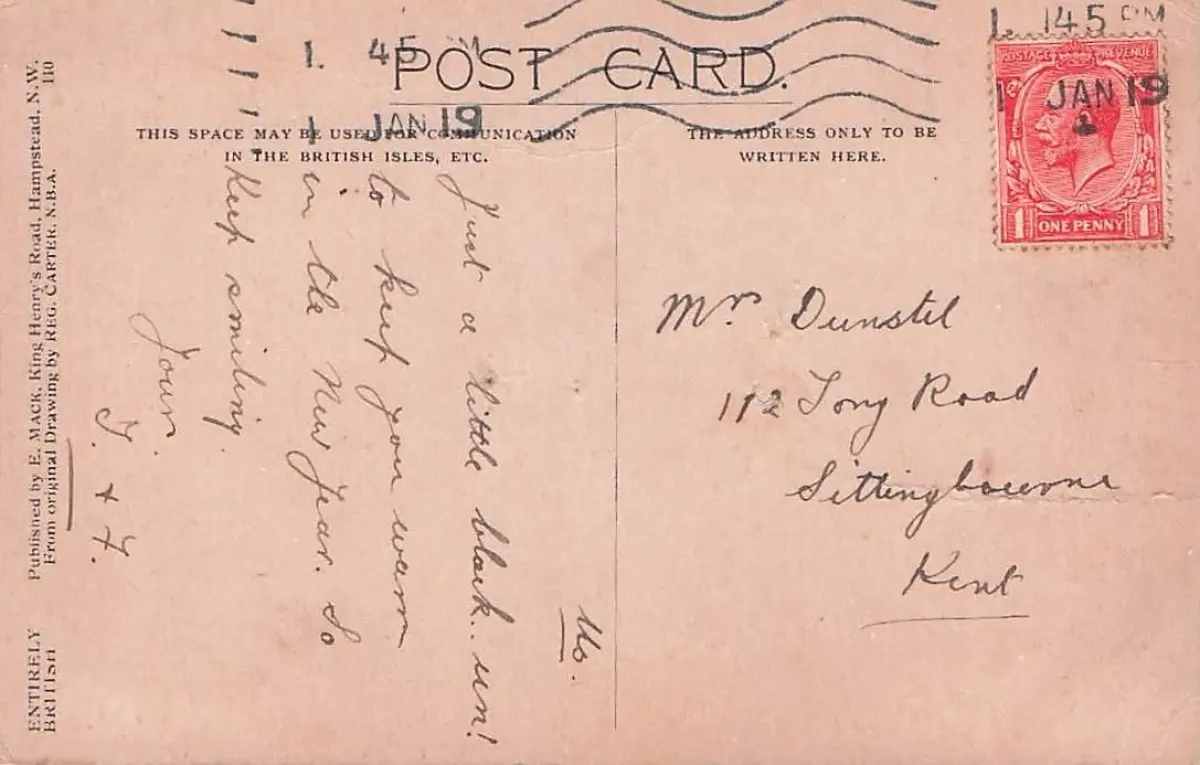 POST CARD.
1. 45 PM
1 JAN 19
1. 145 PM
1 JAN 19
POSTAGE REVENUE
1 ONE PENNY 1
THIS SPACE MAY BE USED FOR COMMUNICATION
IN THE BRITISH ISLES, ETC.
THE ADDRESS ONLY TO BE
WRITTEN HERE.
Us.
Just a little black.. un!
to keep you warm
in the New Year. So
Keep smiling.
Your.
F.
Mrs Dunstel
112 Tong Road
Sittingbourne
Kent
Published by E. MACK, King Henry's Road, Hampstead, N.W.
From original Drawing by REG. CARTER, N.B.A. 110
ENTIRELY
BRITISH